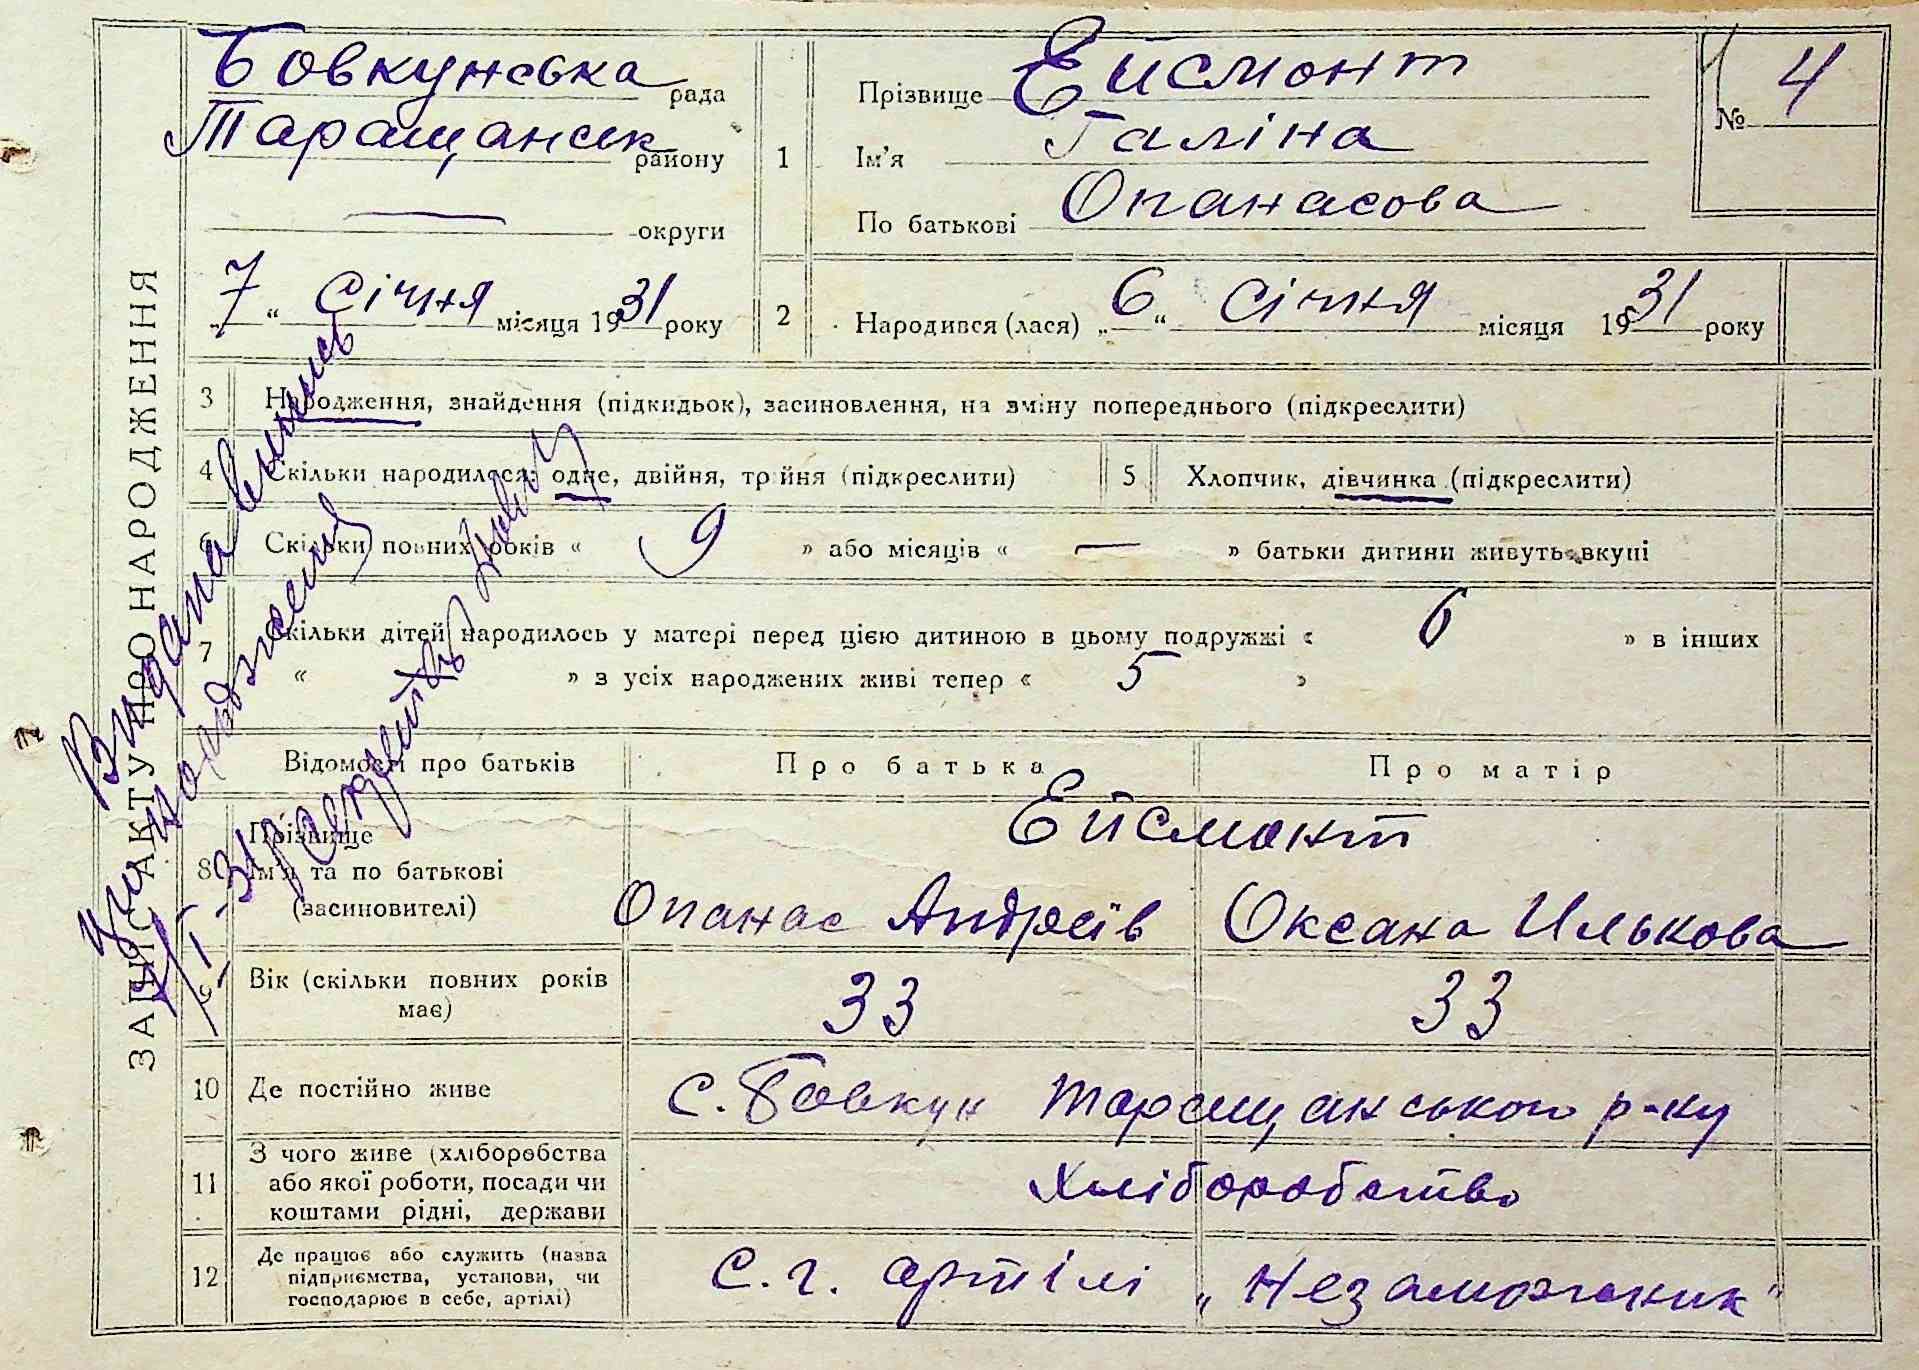 ЗАПИС АКТУ ПРО НАРОДЖЕННЯ
Бовкунська рада
Таращанськ району
— округи
„7“ Січня місяця 1931 року
1
Прізвище Ейсмонт
Ім'я Галіна
По батькові Опанасова
№ 4
2
Народився (лася) „6“ Січня місяця 1931 року
3 Народження, знайдення (підкидьок), засиновлення, на зміну попереднього (підкреслити)
4 Скільки народилося: одне, двійня, трійня (підкреслити)
5 Хлопчик, дівчинка (підкреслити)
6 Скільки повних років « 9 » або місяців « — » батьки дитини живуть вкупі
7 Скільки дітей народилось у матері перед цією дитиною в цьому подружжі « 6 » в інших
« — » з усіх народжених живі тепер « 5 »
Відомості про батьків Про батька Про матір
8 Прізвище Ейсмонт
Ім'я та по батькові
(засиновителі) Опанас Андреїв Оксана Илькова
9 Вік (скільки повних років
має) 33 33
10 Де постійно живе с. Бовкун Таращанського р-ку
11 З чого живе (хліборобства
або якої роботи, посади чи
коштами рідні, держави Хліборобство
12 Де працює або служить (назва
підприємства, установи, чи
господарює в себе, артілі) С. г. артілі „Незаможник"
Видана випись
народження